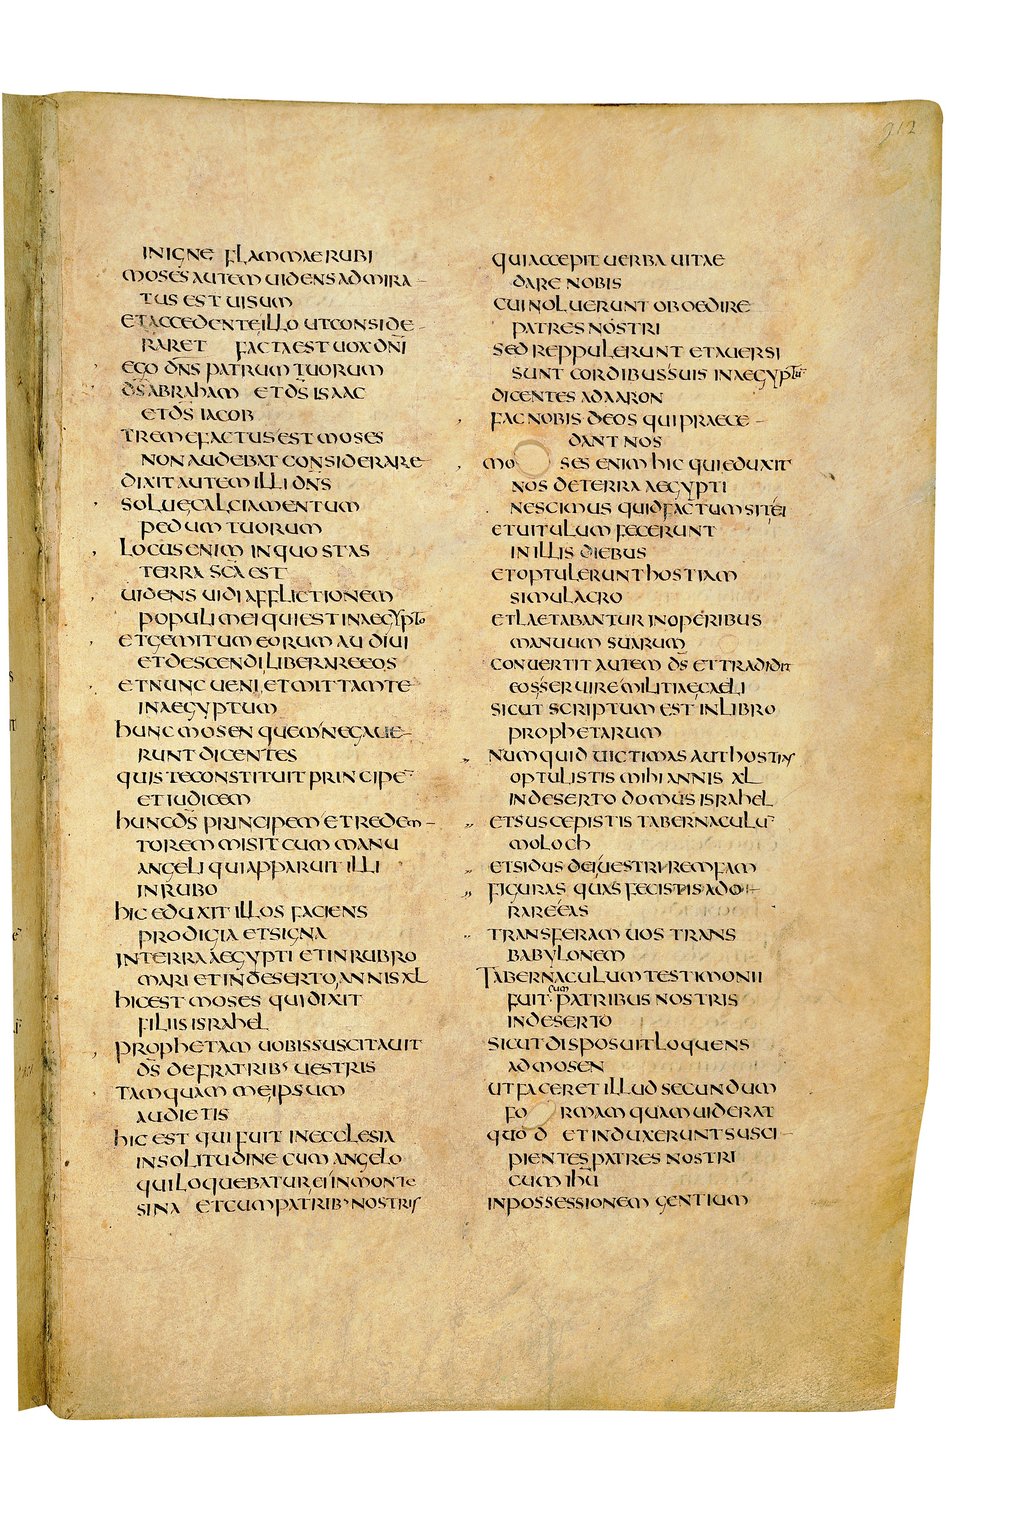 912
IN IGNE FLAMMAE RUBI
MOSES AUTEM UIDENS ADMIRA
TUS EST UISUM
ET ACCEDENTE ILLO UT CONSIDE
RARET FACTA EST UOX DNI
EGO DNS PATRUM TUORUM
DS ABRAHAM ET DS ISAAC
ET DS IACOB
TREMEFACTUS EST MOSES
NON AUDEBAT CONSIDERARE
DIXIT AUTEM ILLI DNS
SOLUE CALCIAMENTUM
PEDUM TUORUM
LOCUS ENIM IN QUO STAS
TERRA SCA EST
UIDENS UIDI AFFLICTIONEM
POPULI MEI QUI EST IN AEGYPTO
ET GEMITUM EORUM AUDIUI
ET DESCENDI LIBERARE EOS
ET NUNC UENI ET MITTAM TE
IN AEGYPTUM
HUNC MOSEN QUEM NEGAUE
RUNT DICENTES
QUIS TE CONSTITUIT PRINCIPE
ET IUDICEM
HUNC DS PRINCIPEM ET REDEM
TOREM MISIT CUM MANU
ANGELI QUI APPARUIT ILLI
IN RUBO
HIC EDUXIT ILLOS FACIENS
PRODIGIA ET SIGNA
IN TERRA AEGYPTI ET IN RUBRO
MARI ET IN DESERTO ANNIS XL
HIC EST MOSES QUI DIXIT
FILIIS ISRAHEL
PROPHETAM UOBIS SUSCITAUIT
DS DE FRATRIB UESTRIS
TAMQUAM ME IPSUM
AUDIETIS
HIC EST QUI FUIT IN ECCLESIA
IN SOLITUDINE CUM ANGELO
QUI LOQUEBATUR EI IN MONTE
SINA ET CUM PATRIB NOSTRIS
QUI ACCEPIT UERBA UITAE
DARE NOBIS
CUI NOLUERUNT OBOEDIRE
PATRES NOSTRI
SED REPPULERUNT ET AUERSI
SUNT CORDIBUS SUIS IN AEGYPTU
DICENTES AD AARON
FAC NOBIS DEOS QUI PRAECE
DANT NOS
MOSES ENIM HIC QUI EDUXIT
NOS DE TERRA AEGYPTI
NESCIMUS QUID FACTUM SIT EI
ET UITULUM FECERUNT
IN ILLIS DIEBUS
ET OPTULERUNT HOSTIAM
SIMULACRO
ET LAETABANTUR IN OPERIBUS
MANUUM SUARUM
CONUERTIT AUTEM DS ET TRADIDIT
EOS SERUIRE MILITIAE CAELI
SICUT SCRIPTUM EST IN LIBRO
PROPHETARUM
NUMQUID UICTIMAS AUT HOSTIAS
OPTULISTIS MIHI ANNIS XL
IN DESERTO DOMUS ISRAHEL
ET SUSCEPISTIS TABERNACULU
MOLOCH
ET SIDUS DEI UESTRI REMFAM
FIGURAS QUAS FECISTIS ADO
RARE EAS
TRANSFERAM UOS TRANS
BABYLONEM
TABERNACULUM TESTIMONII
FUIT cum PATRIBUS NOSTRIS
IN DESERTO
SICUT DISPOSUIT LOQUENS
AD MOSEN
UT FACERET ILLUD SECUNDUM
FORMAM QUAM UIDERAT
QUOD ET INDUXERUNT SUSCI
PIENTES PATRES NOSTRI
CUM IHU
IN POSSESSIONEM GENTIUM